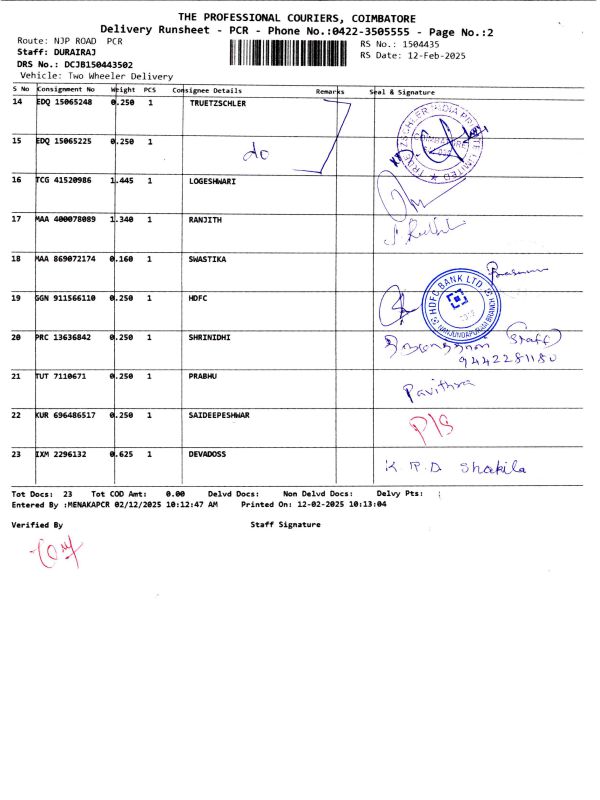 THE PROFESSIONAL COURIERS, COIMBATORE
Delivery Runsheet - PCR - Phone No.:0422-3505555 - Page No.:2
Route: NJP ROAD PCR
RS No.: 1504435
Staff: DURAIRAJ
RS Date: 12-Feb-2025
DRS No.: DCJB150443502
Vehicle: Two Wheeler Delivery
S No Consignment No Weight PCS Consignee Details Remarks Seal & Signature
14 EDQ 15065248 0.250 1 TRUETZSCHLER
15 EDQ 15065225 0.250 1
do
16 TCG 41520986 1.445 1 LOGESHWARI
17 MAA 400078089 1.340 1 RANJITH
18 MAA 869072174 0.160 1 SWASTIKA
19 GGN 911566110 0.250 1 HDFC
HDFC BANK LTD
NANJUNDAPURAM BRANCH
20 PRC 13636842 0.250 1 SHRINIDHI
Staff
9442281180
21 TUT 7110671 0.250 1 PRABHU
Pavithra
22 KUR 696486517 0.250 1 SAIDEEPESHWAR
P/S
23 IXM 2296132 0.625 1 DEVADOSS
K R.D Shakila
Tot Docs: 23 Tot COD Amt: 0.00 Delvd Docs: Non Delvd Docs: Delvy Pts: :
Entered By :MENAKAPCR 02/12/2025 10:12:47 AM Printed On: 12-02-2025 10:13:04
Verified By Staff Signature